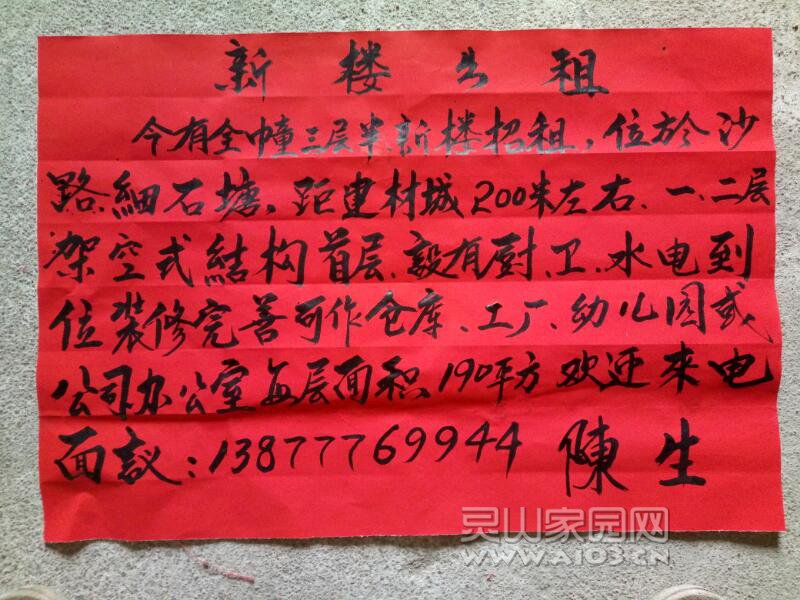 新楼出租
今有全幢三层半新楼招租，位於沙
路細石塘，距建材城200米左右、一、二层
架空式結构首层、設有厨、卫、水电到
位装修完善可作仓库、工厂、幼儿园或
公司办公室每层面积190平方欢迎来电
面议：13877769944 陳生
灵山家园网
www.a103.cn